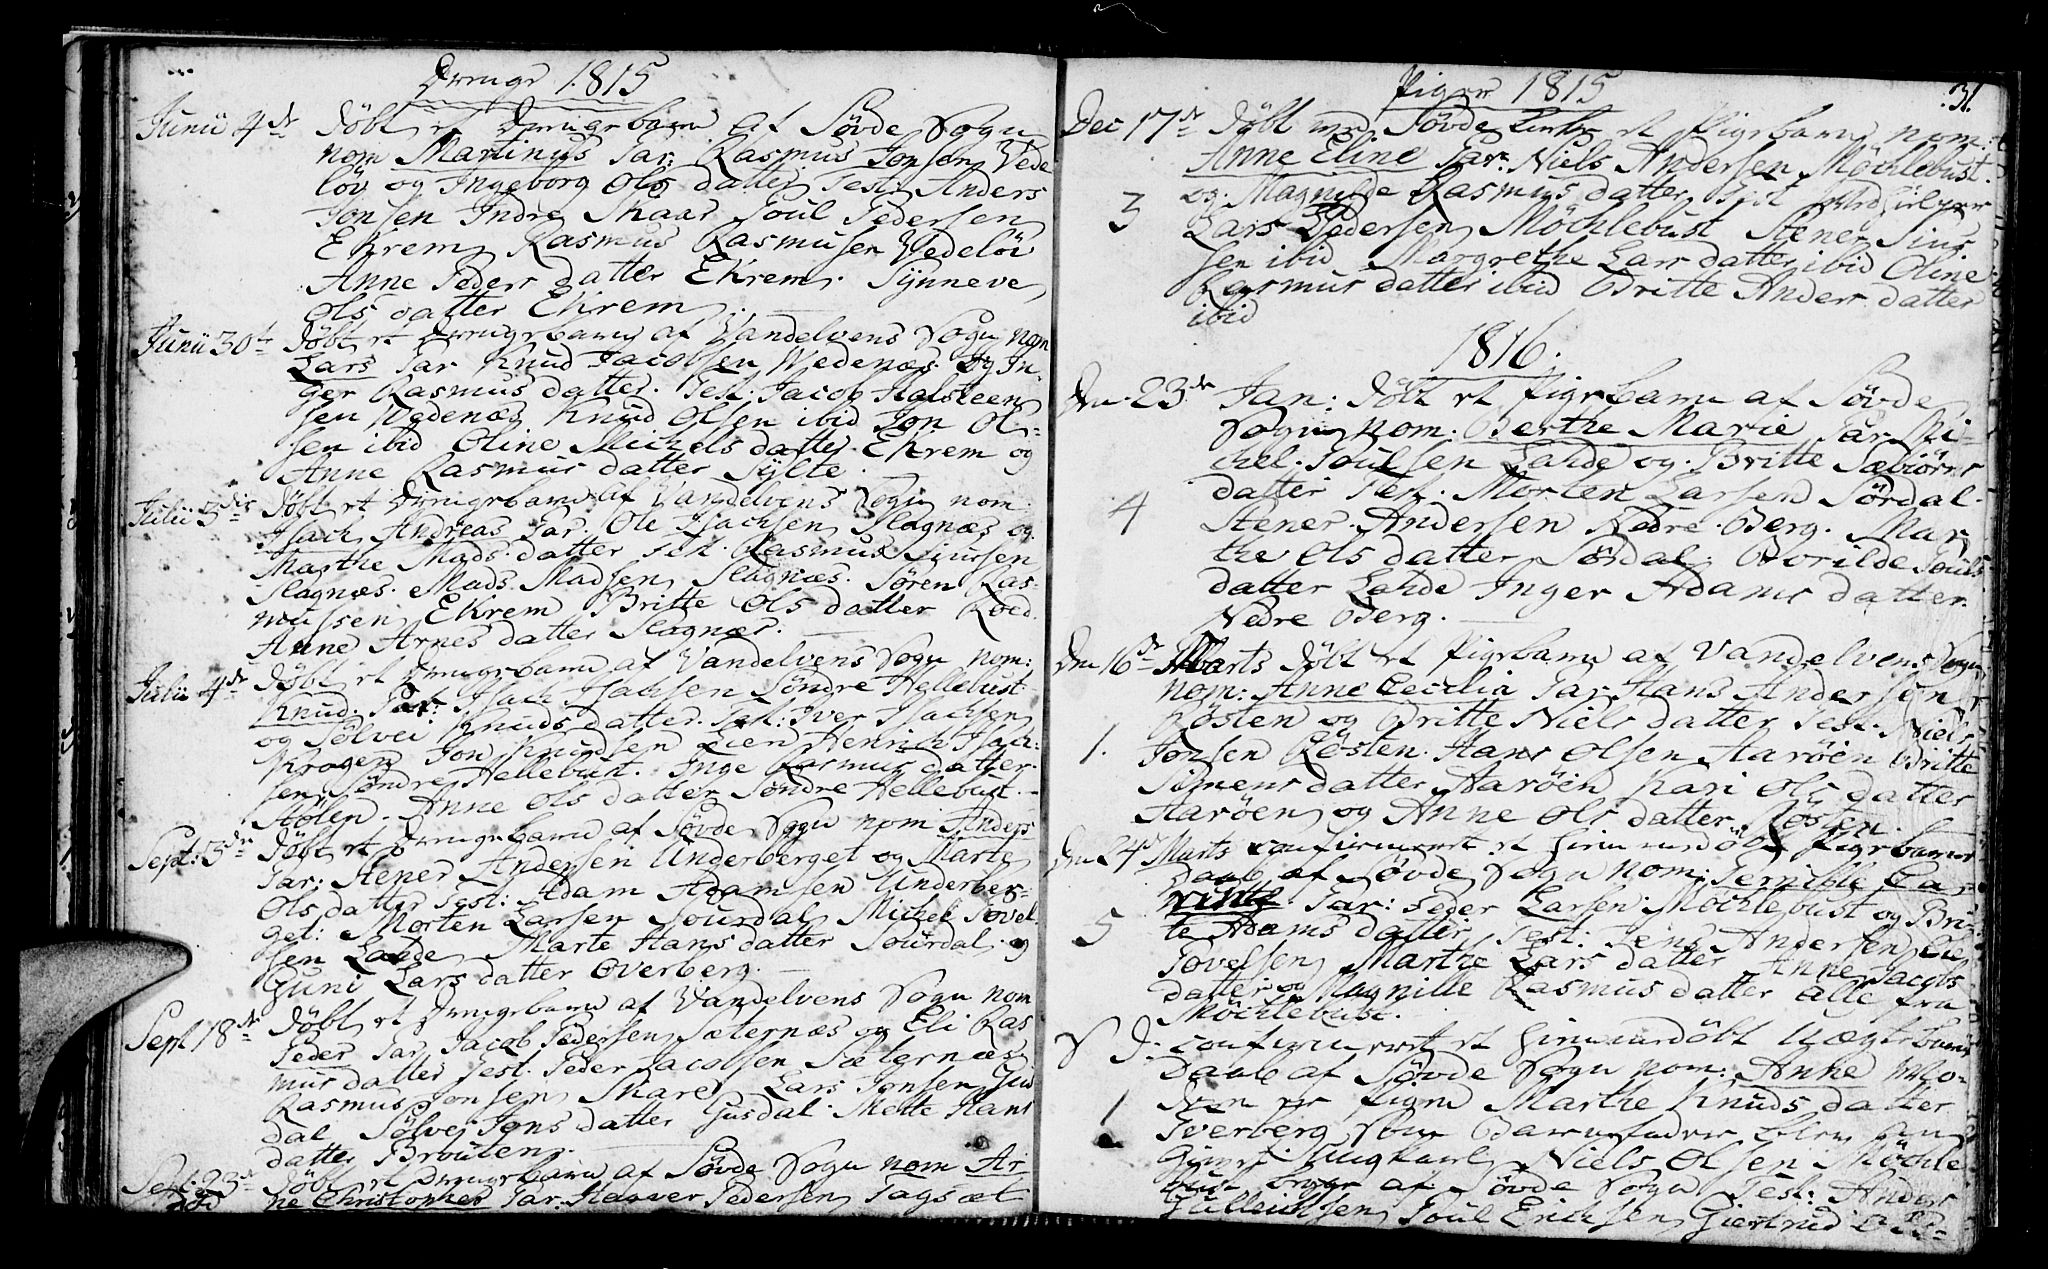 Drenge 1815
Junii 4de Döbt et Drengebarn af Sövde Sogn
nom Martinus Par: Rasmus Jonsen Vede
löv og Ingeborg Ols datter Test: Anders
Jonsen Indre Skaar Poul Pedersen
Ekrem Rasmus Rasmusen Vedelöv
Anne Peders datter Ekrem. Synneve
Ols datter Ekrem.
Junii 30te Döbt et Drengebarn af Vandelvens Sogn nom
Lars Par Knud Jacobsen Wedenæs og In¬
ger Rasmus datter. Test: Jacob Halsteen
sen Wedenæs Knud Olsen ibid Jon Ol¬
sen ibid Oline Michels datter Ekrem og
Anne Rasmus datter Sylte.
Julii 3die Döbt et Drengebarn af Vandelvens Sogn nom:
Isach Andreas Par. Ole Isachsen Slagnæs og
Marthe Mads datter Test. Rasmus Siursen
Slagnæs. Mads Madsen Slagnæs. Sören Ras¬
mussen Ekrem Britte Ols datter Röed
Anne Arnes datter Slagnæs.
Julii 4de Döbt et Drengebarn af Vandelvens Sogn nom:
Knud. Par: Isach Isachsen Söndre Hellebust
og Sölvei Knuds datter. Test: Iver Isachsen
Krogen Jon Knudsen Lien Henrich Isach:
sen Söndre Hellebust. Inge Rasmus datter
Stölen. Anne Ols datter Söndre Hellebust.
Sept: 3die Döbt et Drengebarn af Sövde Sogn nom Anders
Par: Stener Andersen Underberget og Marte
Ols datter Test: Adam Adamsen Underber¬
get: Morten Larsen Sourdal Michel Povel
sen Lahde Marte Hans datter Sourdal og
Guni Lars datter Overberg.
Sept 18de Döbt et Drengebarn af Vandelvens Sogn nom
Peder Par Jacob Pedersen Sæternæs og Eli Ras
mus datter Test. Peder Jacobsen Sæternæs
Rasmus Jonsen Skare Lars Jonsen Gus
dal Sölvei Jons datter Gusdal. Mette Hans
datter Brouten.
Sept: 23de Döbt et Drengebarn af Sövde Sogn nom Ar
ne Christopher Par: Hagver Pedersen Tagsæt
Piger 1815
31
Dec 17de Döbt ved Sövde Kirke et Pigebarn nom:
Anne Eline Par: Niels Andersen Möchlebust.
og Magnilde Rasmus datter
3 Lars Pedersen Möchlebust Stener Siur
sen ibid Margrethe Lars datter ibid Oline
Rasmus datter ibid Britte Anders datter
ibid
1816.
Den 23de Jan: Döbt et Pigebarn af Sövde
Sogn nom: Berthe Marie Par Mi¬
chel Poulsen Lahde og Britte Sæbiörns
datter Test: Morten Larsen Sördal
4 Stener Andersen Nedre Berg. Mar
the Ols datter Sördal. Borilde Pouls
datter Lahde Inger Adams datter
Nedre Berg.
Den 16de Marts Döbt et Pigebarn af Vandelvens Sogn
nom: Anne Cecilia Par Hans Andersen
Rösten og Britte Niels datter Test: Niels
1. Jonsen Rösten. Hans Olsen Aaröen Britte
Simens datter Aaröen Kari Ols datter
Aaröen og Anne Ols datter Rösten.
Den 24de Marts confirmeret et hiemmedöbt Pigebarns
Daab af Sövde Sogn nom: Pernille Ca
Par: Peder Larsen Möchlebust og Brit
5 te Adams datter Test: Jens Andersen
Povelsen Marthe Lars datter Anne Jacobs
datter og Magnille Rasmus datter alle fra
Möchlebust.
S D: confirmeret et hiemmedöbt Uægte barns
Daab af Sövde Sogn nom: Anne
Pigen Marthe Knuds datter
1 Iverberg Som Barnefader blev an
givet Ungkarl Niels Olsen Möchle
bust begge af Sövde Sogn Test: Anders
Gulleichsen Poul Erichsen Giertrud